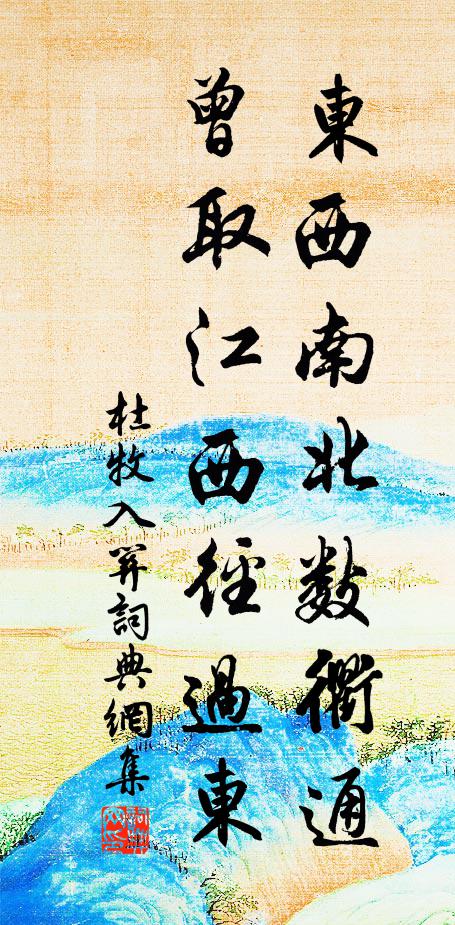 東西南北數衢通
曾取江西徑過東
杜牧入關詞典網集